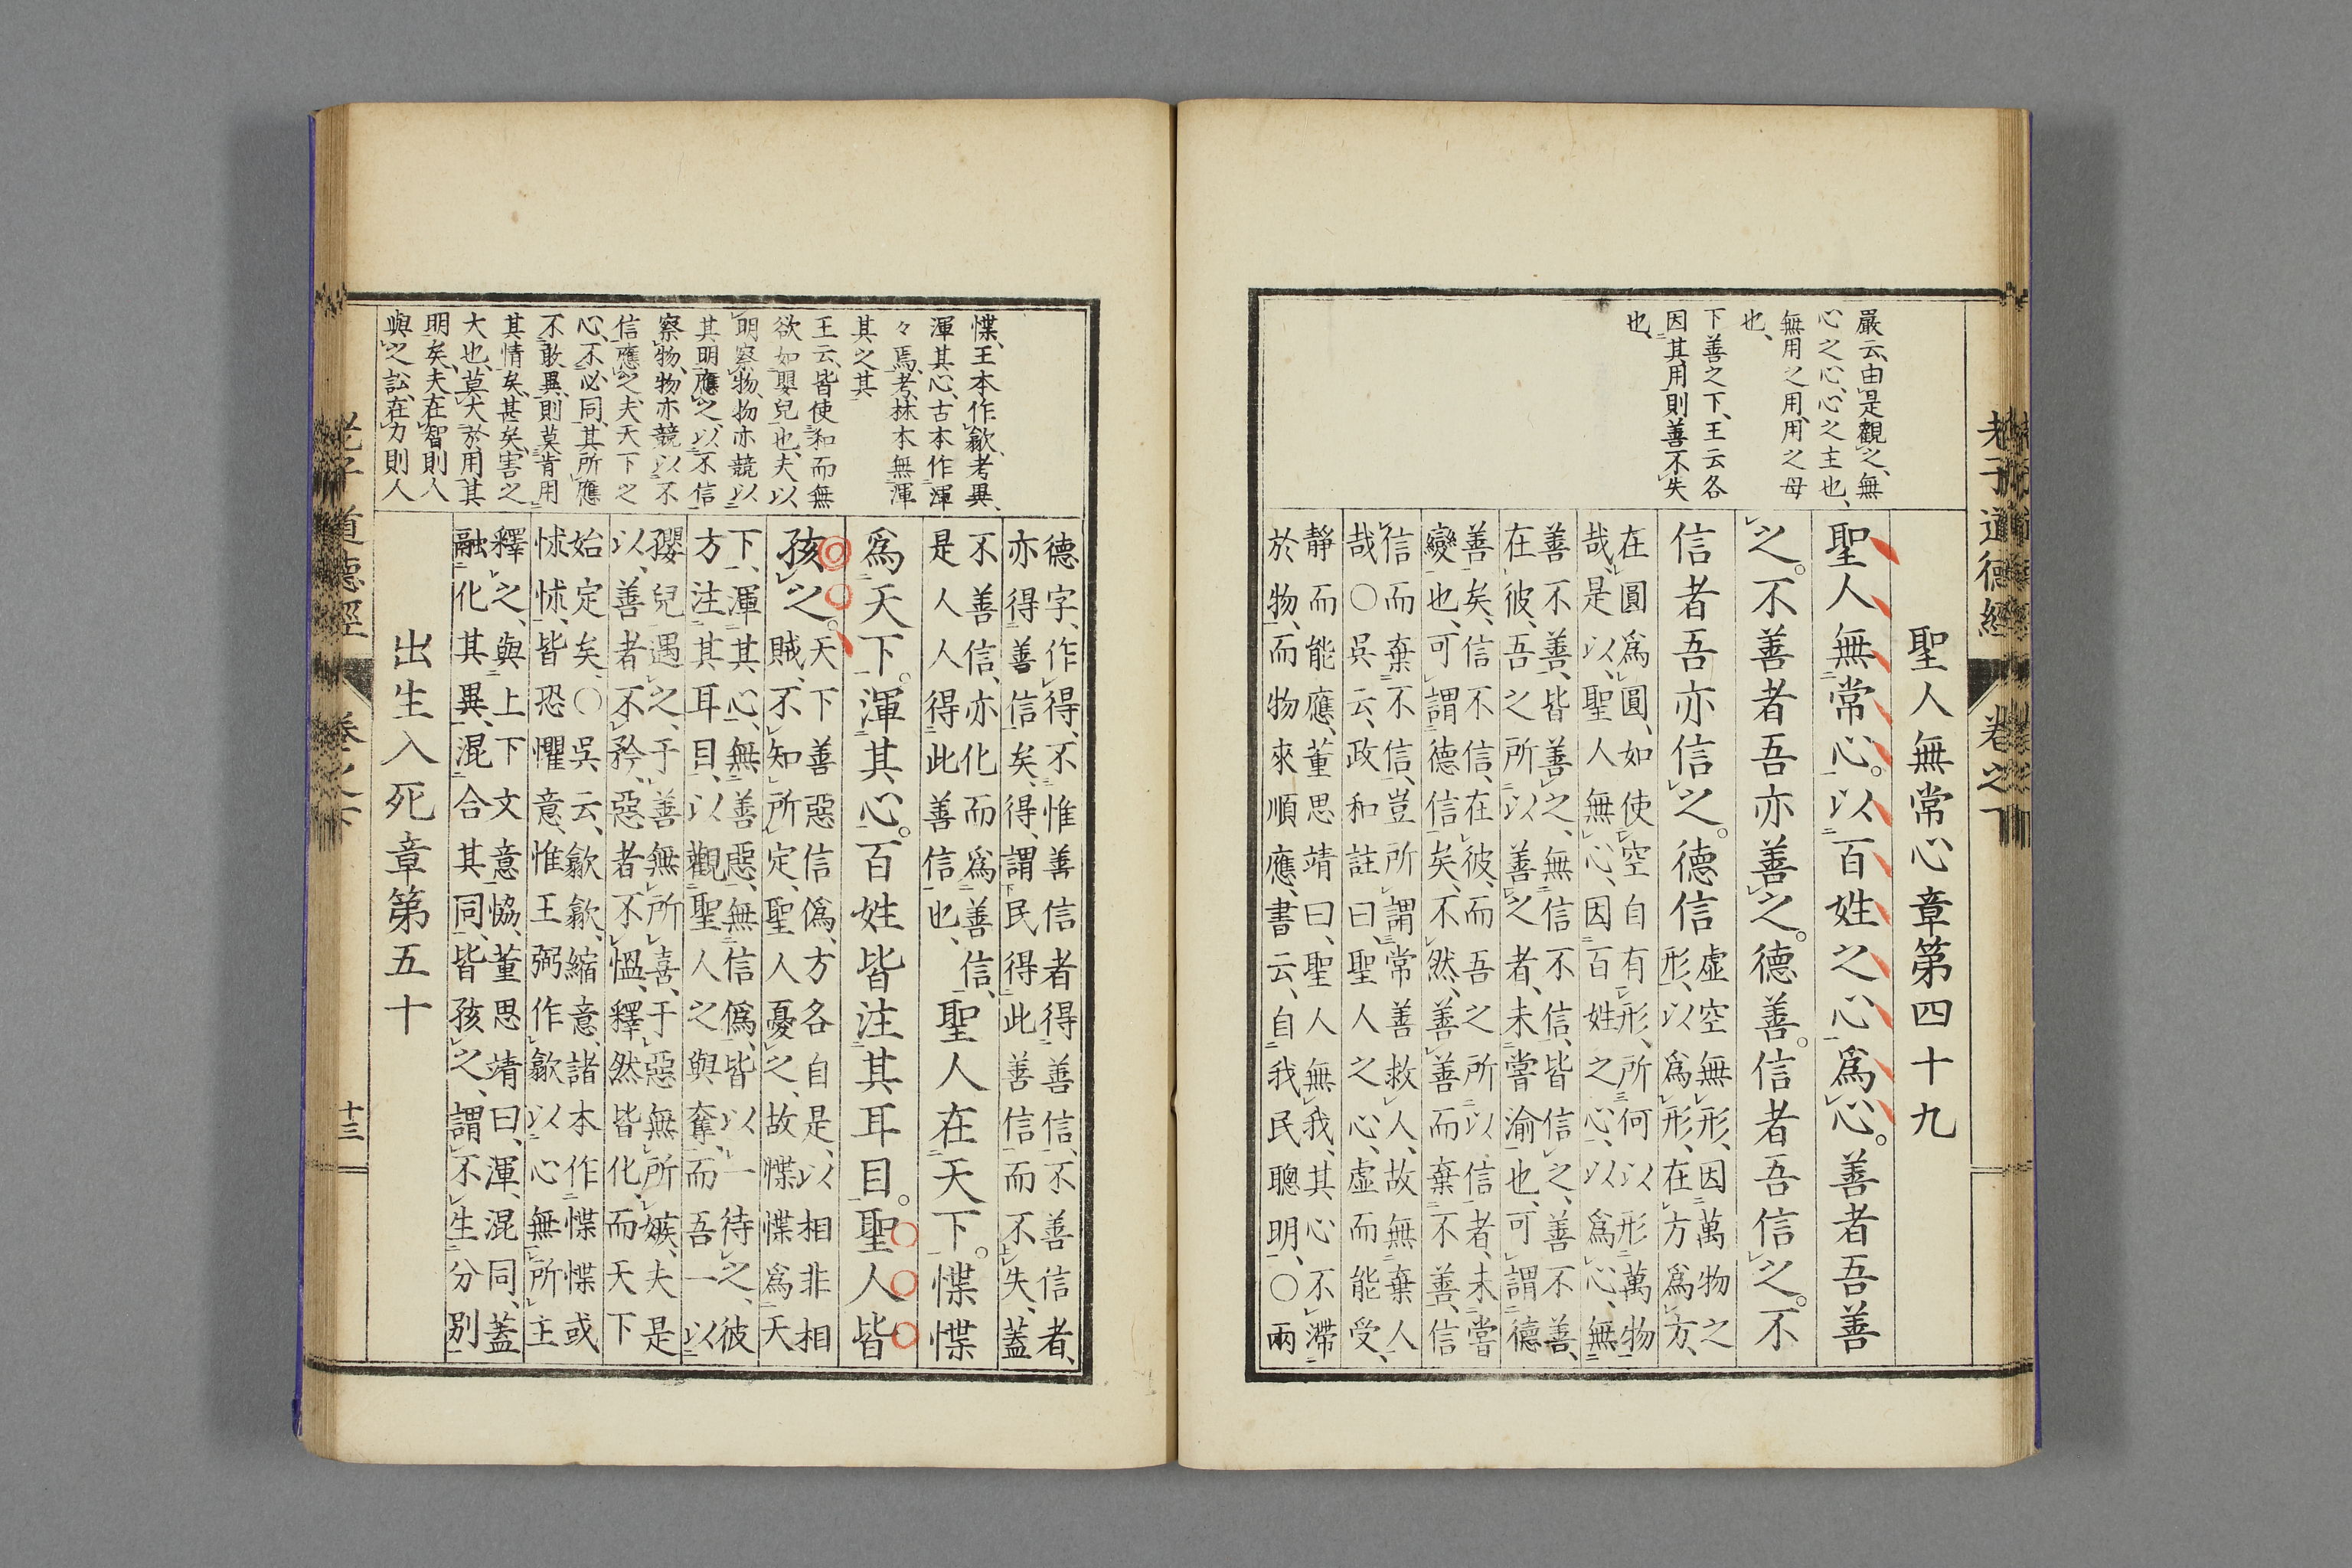 老子道德經
卷之下
嚴云、由是觀之、無
心之心、心之主也、
無用之用、用之母
也、
下善之下、王云各
因其用則善不失
也、
聖人無常心章第四十九
聖人無常心。以百姓之心爲心。善者吾善
之。不善者吾亦善之。德善。信者吾信之。不
信者吾亦信之。德信
虛空無形、因萬物之
形、以爲形、在方爲方、
在圓爲圓、如使空自有形、所何以形萬物
哉、是以、聖人無心、因百姓之心、以爲心、無
善不善、皆善之、無信不信、皆信之、善不善、
在彼、吾之所以善之者、未嘗渝也、可謂德
善矣、信不信、在彼、而吾之所以信者、未嘗
變也、可謂德信矣、不然、善善而棄不善、信
信而棄不信、豈所謂常善救人、故無棄人
哉○吳云、政和註曰、聖人之心、虛而能受、
靜而能應、董思靖曰、聖人無我、其心不滯
於物、而物來順應、書云、自我民聰明、○兩
惵、王本作歙、考異、
渾其心、古本作渾
々焉、考、抹本無渾
其之其
王云、皆使和而無
欲如嬰兒也、夫以
明察物、物亦競以
其明應之、以不信
察物、物亦競以不
信應之、夫天下之
心、不必同、其所應
不敢異、則莫肯用
其情矣、甚矣、害之
大也、莫大於用其
明矣、夫在智則人
與之訟、在力則人
德字、作得、不惟善信者得善信、不善信者、
亦得善信矣、得、謂民得此善信而不失、蓋
不善信、亦化而爲善信、
是人人得此善信也、
聖人在天下。惵惵
爲天下。渾其心。百姓皆注其耳目。聖人皆
孩之。
天下善惡信僞、方各自是、以相非相
賊、不知所定、聖人憂之、故惵惵爲天
下、渾其心、無善惡、無信僞、皆以一待之、彼
方注其耳目、以觀聖人之與奪、而吾一以
嬰兒遇之、于善無所喜、于惡無所嫉、夫是
以、善者不矜、惡者不慍、釋然皆化、而天下
始定矣、○吳云、歙歙、縮意、諸本作惵惵或
怵怵、皆恐懼意、惟王弼作歙以心無所主
釋之、與上下文意協、董思靖曰、渾、混同、蓋
融化其異、混合其同、皆孩之、謂不生分別
出生入死章第五十
老子道德經
卷之下
十三